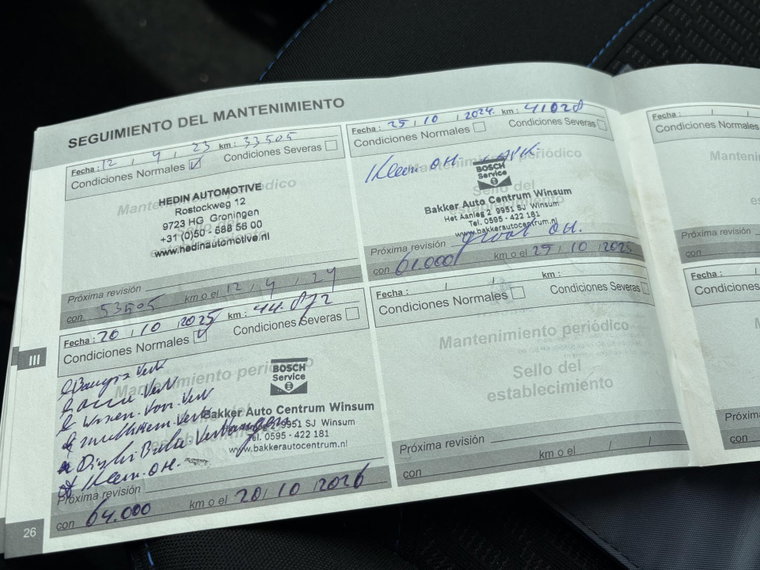 SEGUIMIENTO DEL MANTENIMIENTO
Fecha : 12 / 9 / 23 km : 33505
Condiciones Normales Condiciones Severas
Mantenimiento periódico
HEDIN AUTOMOTIVE
Rostockweg 12
9723 HG Groningen
+31 (0)50 - 588 56 00
www.hedinautomotive.nl
Próxima revisión
con 53505 km o el 12 / 9 / 24
Fecha : 25 / 10 / 2024 km : 41028
Condiciones Normales Condiciones Severas
Klein O.H.
Mantenimiento periódico
BOSCH
Service
Sello del
Bakker Auto Centrum Winsum
Het Aanleg 2 9951 SJ Winsum
Tel. 0595 - 422 181
www.bakkerautocentrum.nl
Próxima revisión groot O.H.
con 61.000 km o el 25 / 10 / 2025
III
Fecha : 20 / 10 / 2025 km : 44.872
Condiciones Normales Condiciones Severas
Mantenimiento periódico
BOSCH
Service
Bakker Auto Centrum Winsum
2 9951 SJ Winsum
Tel. 0595 - 422 181
www.bakkerautocentrum.nl
Klein O.H.
Próxima revisión
con 64.000 km o el 20 / 10 / 2026
Fecha : / / km :
Condiciones Normales Condiciones Severas
Mantenimiento periódico
Sello del
establecimiento
Próxima revisión
con km o el / /
Fecha : / /
Condiciones Normales
Próxima revisión
con
Fecha : / /
Condiciones Normale
Próxima revisión
con
26